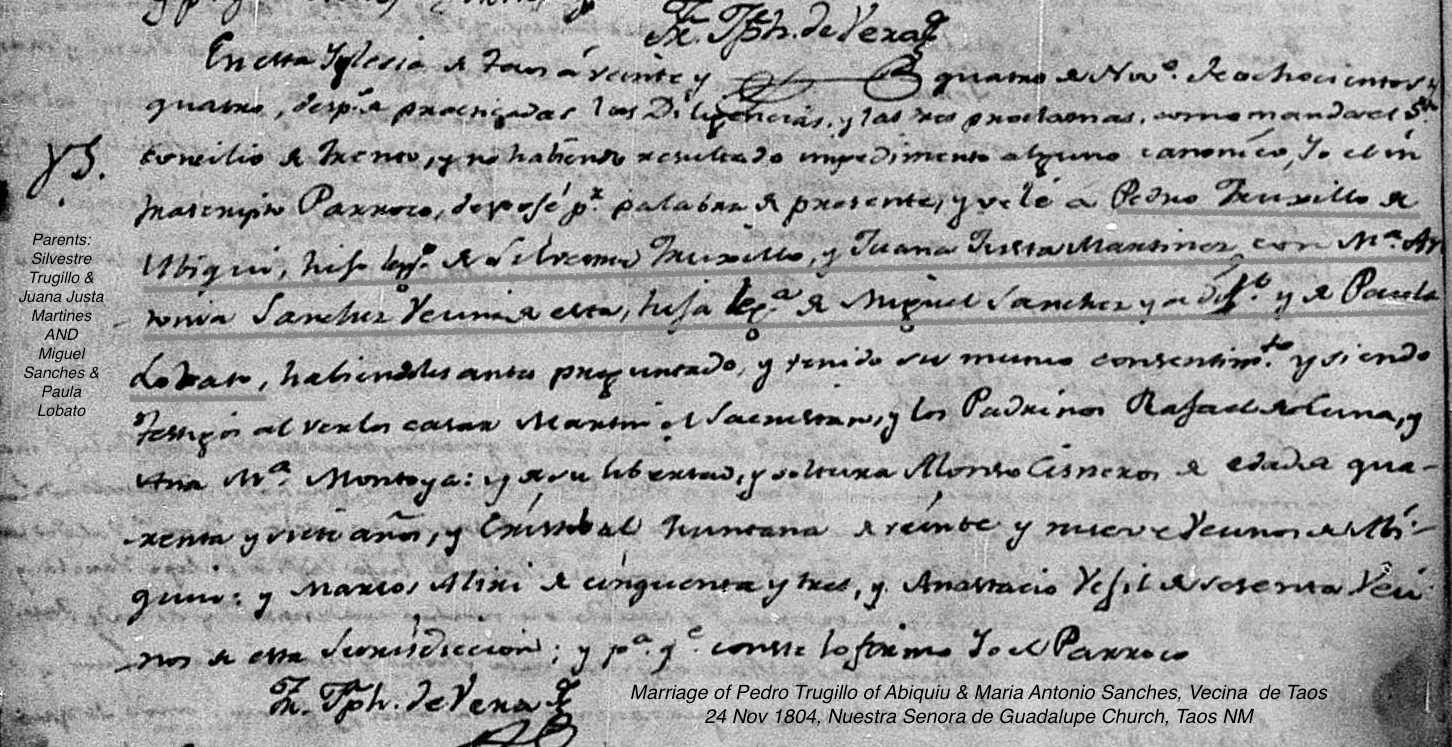 Fr. Jph. de Vera
En esta Yglesia de Taos á veinte y quatro de Nov.º de ochocientos y
quatro, desp.s de practicadas las Diligencias, y las tres proclamas, como manda el S.to
Concilio de Trento, y no habiendo resultado impedimento alguno canonico, Yo el in
frascripto Parroco, desposé p.r palabra de presente, y velé a Pedro Truxillo de
Abiquiu, hijo leg.º de Silvestre Truxillo, y Juana Justa Martines, con M.ª An
tonia Sanches Vecina de esta, hija leg.ª de Miguel Sanches ya dif.to y de Paula
Lobato, habiendoles antes preguntado, y tenido su mutuo consentim.to y siendo
Testigos al verlos casar Martin el Sacristan, y los Padrinos Rafael de Luna, y
Ana M.ª Montoya: y de su libertad, y soltura Alonso Cisneros de edad de qua-
renta y siete años, y Cristobal Quintana de veinte y nueve Vecinos de Abi-
quiu: y Marcos de cinquenta y tres, y Anastacio Vegil de sesenta Veci
nos de esta Jurisdiccion; y p.ª q.e conste lo firmo Yo el Parroco
Fr. Jph. de Vera
Parents:
Silvestre
Trugillo &
Juana Justa
Martines
AND
Miguel
Sanches &
Paula
Lobato
Marriage of Pedro Trugillo of Abiquiu & Maria Antonio Sanches, Vecina de Taos
24 Nov 1804, Nuestra Senora de Guadalupe Church, Taos NM